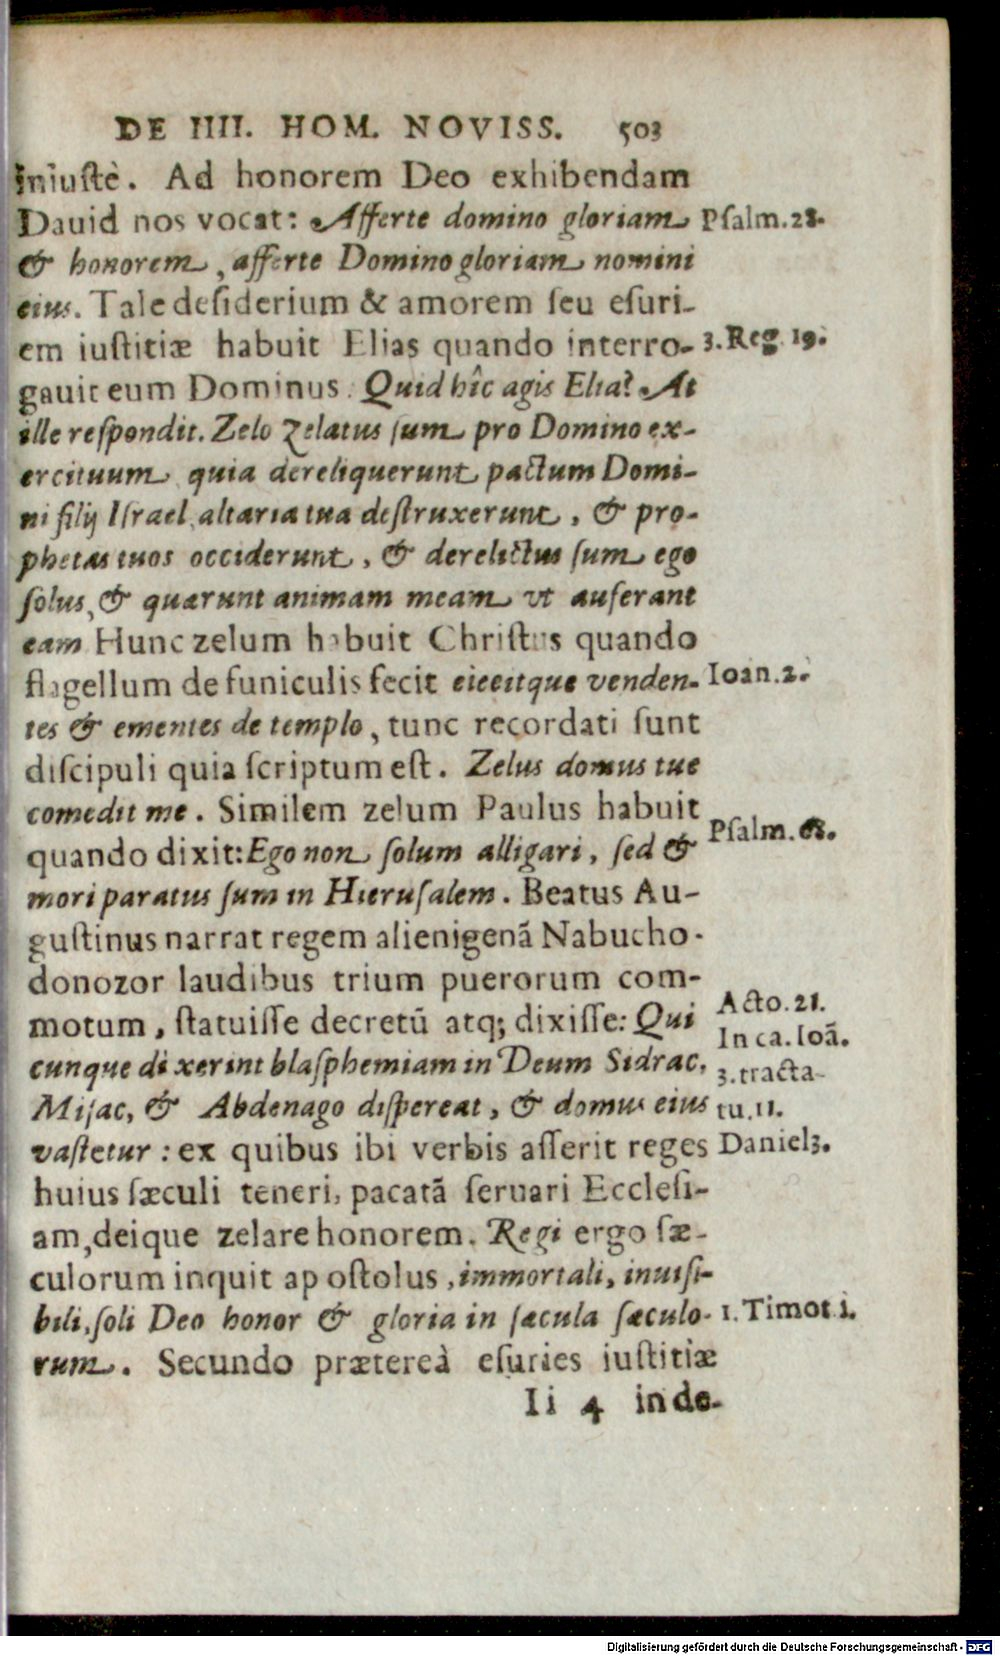 DE IIII. HOM. NOVISS. 503
iniustè. Ad honorem Deo exhibendam
Dauid nos vocat: Afferte domino gloriam
Psalm. 28.
& honorem, afferte Domino gloriam nomini
eius. Tale desiderium & amorem seu esuri-
em iustitiæ habuit Elias quando interro-
3. Reg 19.
gauit eum Dominus. Quid hîc agis Elia? At
ille respondit. Zelo zelatus sum pro Domino ex-
ercituum quia dereliquerunt pactum Domi-
ni filij Israel, altaria tua destruxerunt, & pro-
phetas tuos occiderunt, & derelictus sum ego
solus, & quærunt animam meam vt auferant
eam Hunc zelum habuit Christus quando
flagellum de funiculis fecit eieeitque venden-
Ioan. 2.
tes & ementes de templo, tunc recordati sunt
discipuli quia scriptum est. Zelus domus tue
comedit me. Similem zelum Paulus habuit
Psalm. 68.
quando dixit: Ego non solum alligari, sed &
mori paratus sum in Hierusalem. Beatus Au-
gustinus narrat regem alienigenã Nabucho-
donozor laudibus trium puerorum com-
Acto. 21.
motum, statuisse decretũ atq; dixisse: Qui
In ca. Ioã.
cunque dixerint blasphemiam in Deum Sidrac,
3. tracta-
Misac, & Abdenago dispereat, & domus eius
tu. 11.
vastetur: ex quibus ibi verbis asserit reges
Daniel 3.
huius sæculi teneri, pacatã seruari Ecclesi-
am, deique zelare honorem. Regi ergo sæ-
culorum inquit apostolus, immortali, inuisi-
bili, soli Deo honor & gloria in sæcula sæculo-
1. Timot 1.
rum. Secundo præterea esuries iustitiæ
Ii 4 inde-
Digitalisierung gefördert durch die Deutsche Forschungsgemeinschaft - DFG